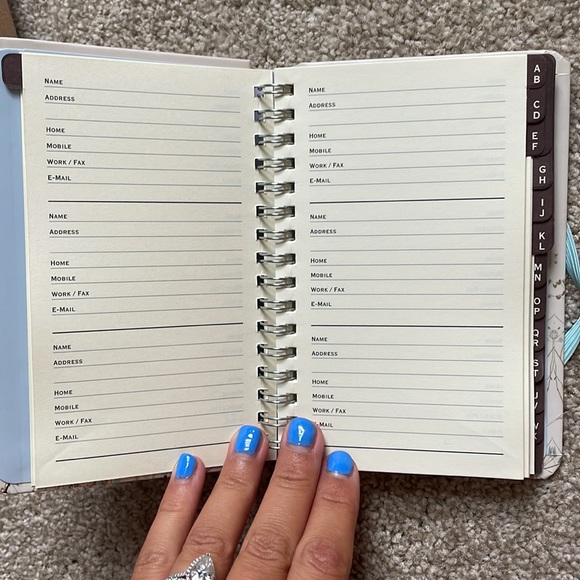 NAME
ADDRESS
HOME
MOBILE
WORK / FAX
E-MAIL
NAME
ADDRESS
HOME
MOBILE
WORK / FAX
E-MAIL
NAME
ADDRESS
HOME
MOBILE
WORK / FAX
E-MAIL
NAME
ADDRESS
HOME
MOBILE
WORK / FAX
E-MAIL
NAME
ADDRESS
HOME
MOBILE
WORK / FAX
E-MAIL
NAME
ADDRESS
HOME
MOBILE
WORK / FAX
A
B
C
D
E
F
G
H
I
J
K
L
M
N
O
P
Q
R
S
T
U
V